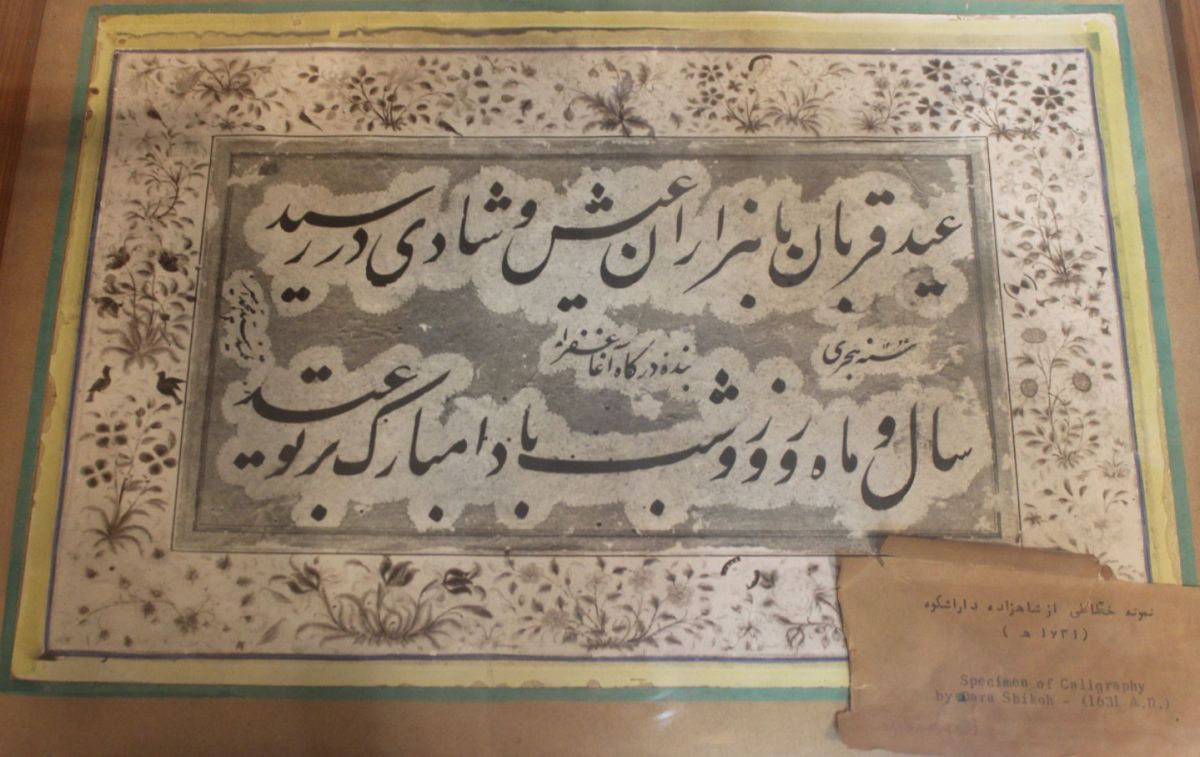 عید قربان با هزاران عیش و شادی در رسید
سنه هجری
بنده درگاه آغا غفر له
سال و ماه و روز و شب بادا مبارک بر تو عید
نمونه خطاطی از شاهزاده داراشکوه
(١٦٣١ ه )
Specimen of Caligraphy
by Dara Shikoh - (1631 A.D.)